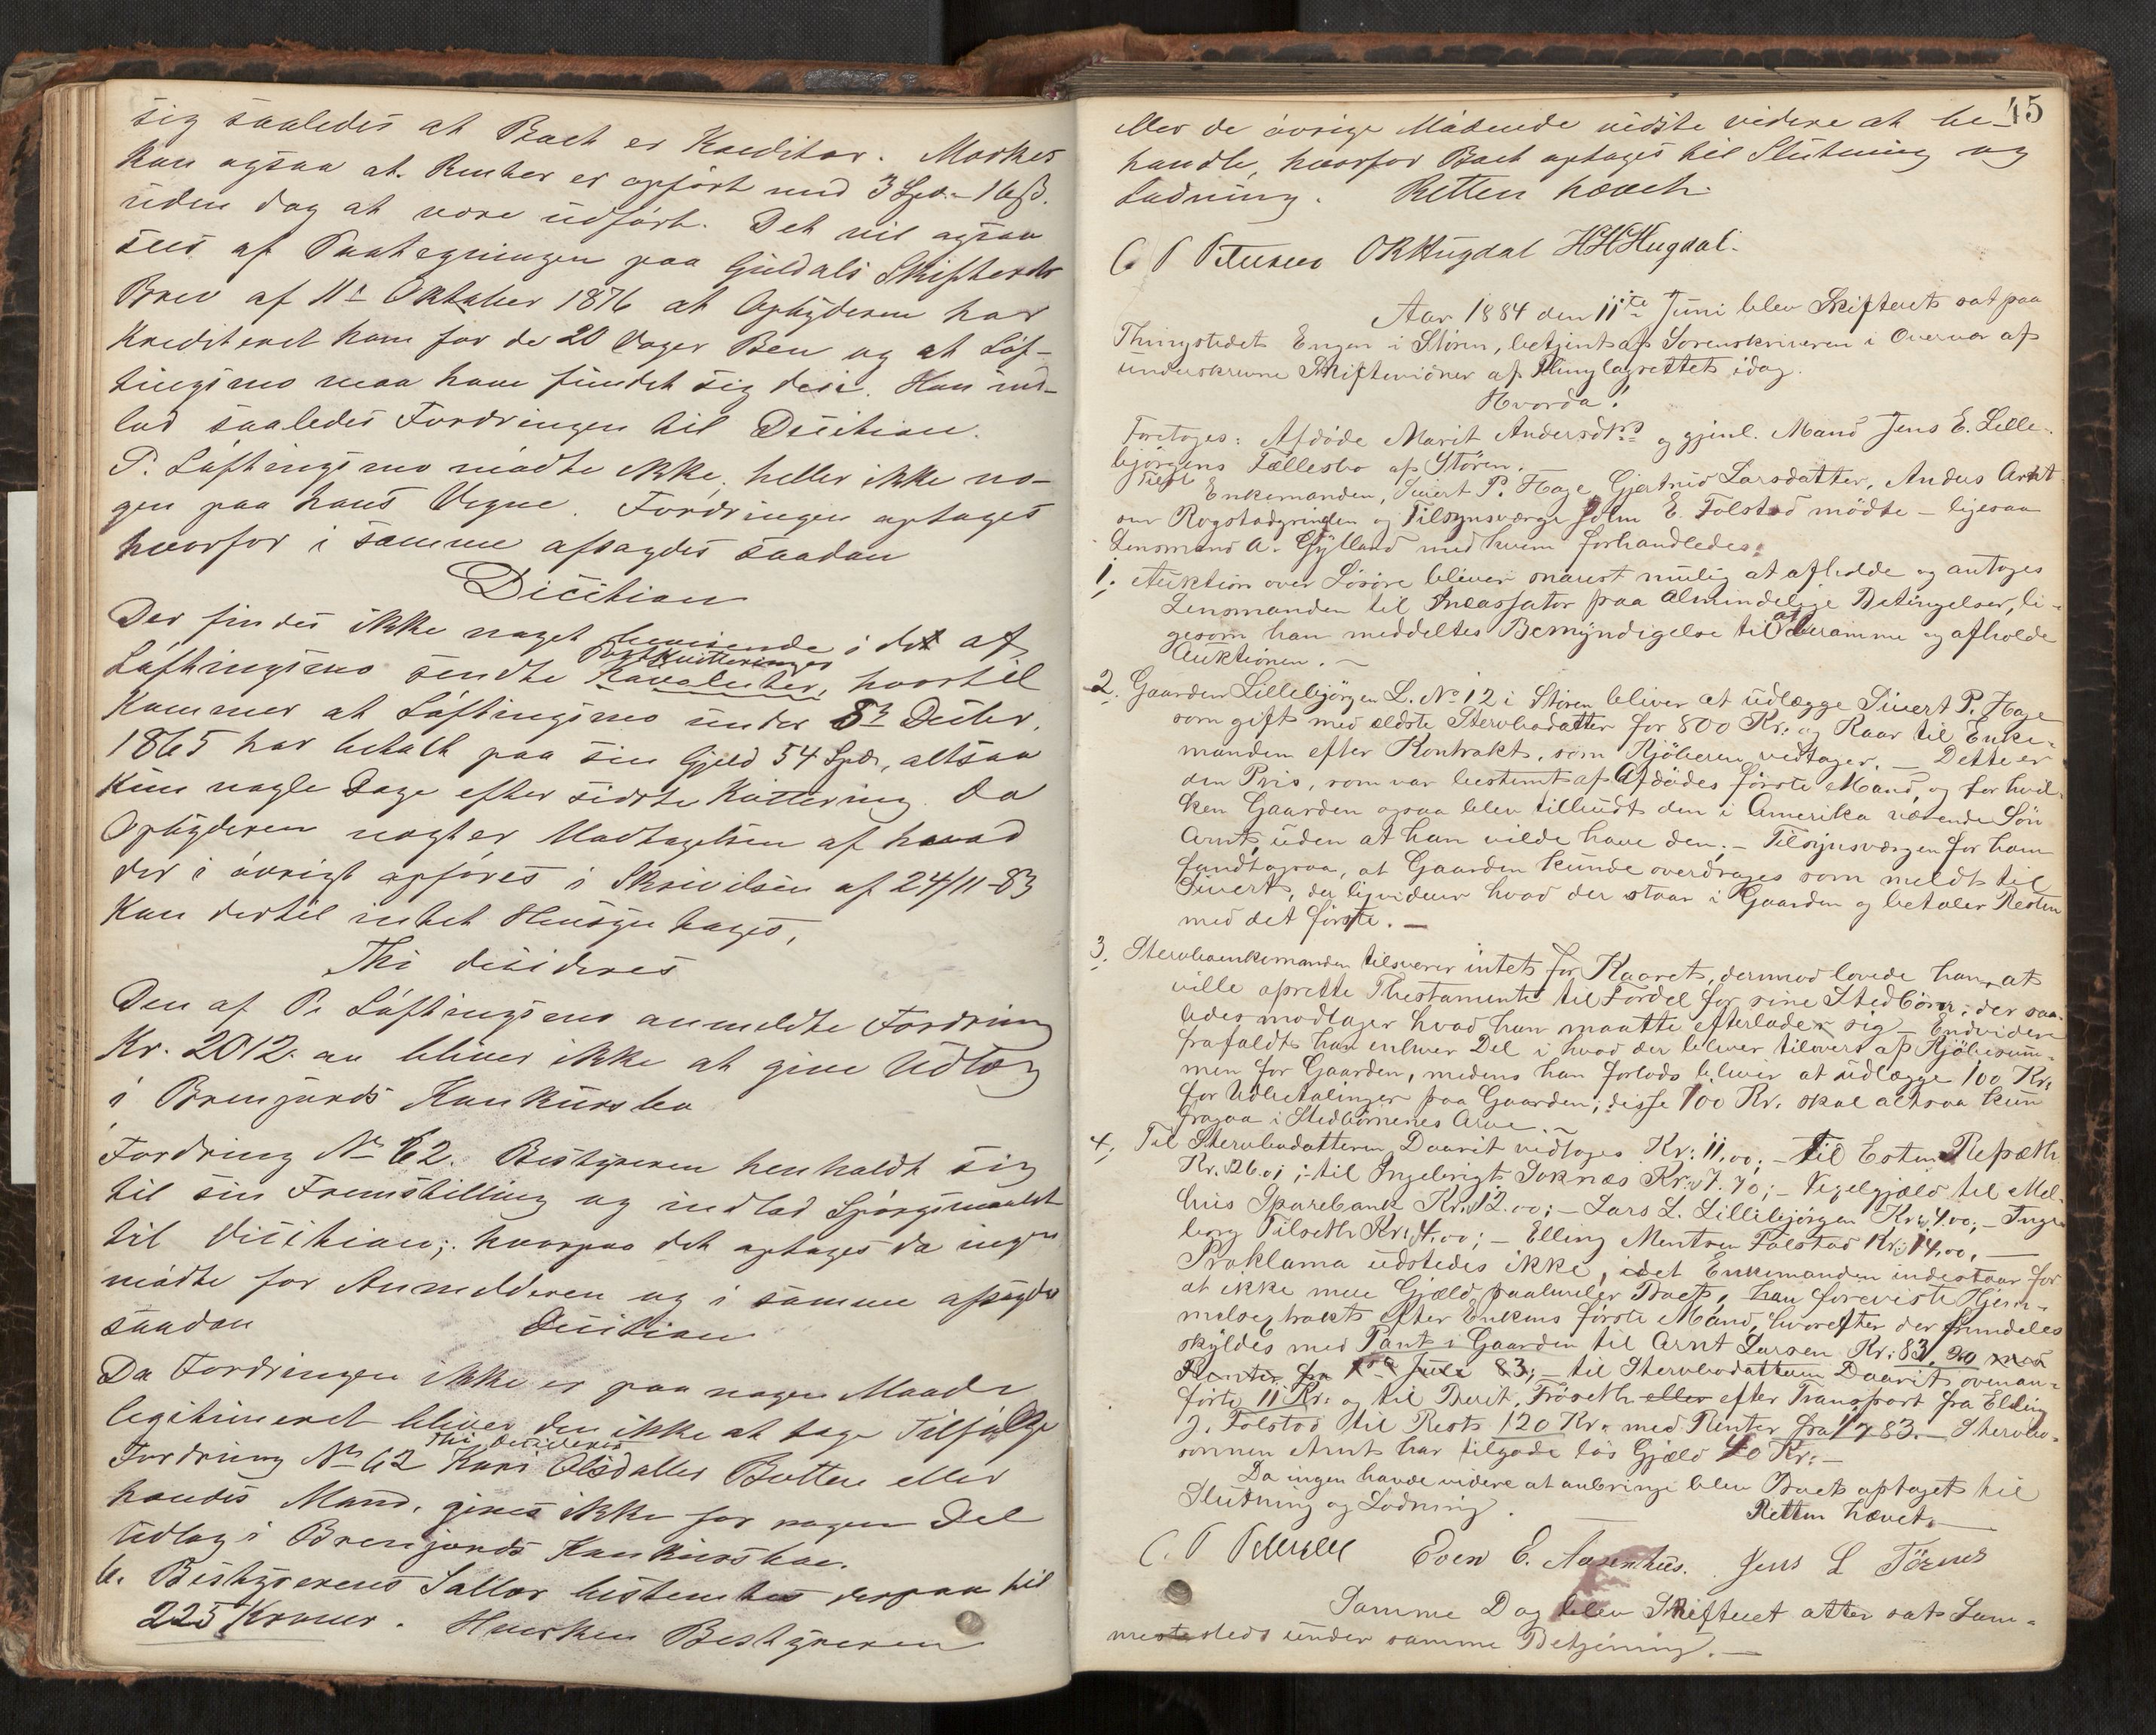 sig saaledes at Boet er Kreditor. Mærkes
kan ogsaa at Renter er opført med 3 Spd. 16 ß.
uden dog at være udført. Det vil ogsaa
sees af Paategningen paa Guldals Skifterets
Brev af 11te Oktober 1876 at Opbyderen har
krediteret ham for de 20 Voger Ben og at Løf-
tingsmo maa have fundet sig deri. Han ind-
lod saaledes Fordringen til Decition.
P. Løftingsmo mødte ikke, heller ikke no-
gen paa hans Vegne. Fordringen optoges
hvorfor i samme afsagdes saadan
Decition
Der findes ikke noget bevisende i det af
Løftingsmo sendte Postkvitteringer, hvortil
kommer at Løftingsmo under 8de Decbr.
1865 har betalt paa sin Gjeld 54 Spdr, altsaa
kun nogle Dage efter sidste Kvittering. Da
Opbyderen negter Modtagelsen af hvad
der i øvrigt opføres i Skrivelsen af 24/11-83
kan dertil intet Hensyn tages,
Thi decideres
Den af P. Løftingsmo anmeldte Fordring
Kr. 2012.00 bliver ikke at give Udlæg
i Brenjords Konkursbo
Fordring No 62. Bestyreren henholdt sig
til sin Fremstilling og indlod Spørgsmaalet
til Decition; hvorpaa det optoges da ingen
mødte for Anmelderen og i samme afsagdes
saadan Decition
Da Fordringen ikke er paa nogen Maade
legitimeret bliver den ikke at tage Tilfølge
Thi decideres
Fordring No 62 Kari Olsdatter Botten eller
hendes Mand, gives ikke for nogen Del
Udlæg i Brenjords Konkursbo.
6. Bestyrerens Sallær bestemtes derpaa til
225 Kroner. Hverken Bestyreren
45
eller de øvrige Mødende vidste videre at be-
handle, hvorfor Boet optoges til Slutning og
Lodning. Retten hævet.
C P Petersen OR Hugdal HH Hugdal.
Aar 1884 den 11te Juni blev Skifteret sat paa
Thingstedet Engen i Støren, betjent af Sorenskriveren i Overvær af
underskrevne Skiftevidner af Thinglagrettet idag.
Hvorda!
Foretoges: Afdøde Marit Andersdtrs og gjenl. Mand Jens E. Lille-
bjørgens Fællesbo af Støren.
Enkemanden, Sivert P. Hage, Gjertrud Larsdatter, Anders Arnt-
sen Rogstadgrinden og Tilsynsværge John E. Folstad mødte – ligesaa
Lensmand A. Gylland med hvem forhandledes:
1. Auktion over Løsøre bliver snarest mulig at afholde og antoges
Lensmanden til Incassator paa almindelige Betingelser, li-
gesom han meddeltes Bemyndigelse til at beramme og afholde
Auktionen. –
2. Gaarden Lillebjørgen L. No 12 i Støren bliver at udlægge Sivert P. Hage
som gift med ældste Stervbodatter for 800 Kr. og Kaar til Enke-
manden efter Kontrakt, som Kjøberen vedtager. – Dette er
den Pris, som var bestemt af Afdødes første Mand, og for hvil-
ken Gaarden ogsaa blev tilbudt den i Amerika værende Søn
Arnt, uden at han vilde have den. – Tilsynsværgen for ham
fandt ogsaa, at Gaarden kunde overdrages som meldt til
Sivert, der liqviderer hvad der staar i Gaarden og betaler Resten
med det første. –
3. Stervboenkemanden tilsvarer intet for Kaaret, dermod lovede han, at
ville oprette Thestamente til Fordel for sine Stedbørn, der saa-
ledes modtager hvad han maatte efterlade sig – Endvidere
frafaldt han enhver Del i hvad der bliver tilovers af Kjøbesum-
men for Gaarden, medens han forlods bliver at udlægge 100 Kr.
for Udbetalinger paa Gaarden; disse 100 Kr. skal altsaa kun
fragaa i Stedbørnenes Arve. –
4. Til Stervbodatteren Daarit vedtoges Kr: 11.00; – Til Esten Refsæth
Kr. 26.01; – til Ingebrigt Soknæs Kr. 7.70; – Vexelgjæld til Mel-
hus Sparebank Kr. 12.00; – Lars L. Lillebjørgen Kr. 4.00; – Inge-
borg Tilseth Kr. 4.00; – Elling Mentsen Folstad Kr: 14.00. –
Proklama udstedes ikke, idet Enkemanden indestaar for
at ikke mere Gjæld paahviler Boet, han foreviste Hjem-
melsextrakt efter Enkens første Mand, hvorefter der fremdeles
skyldes med Pant i Gaarden til Arnt Larsen Kr: 83,20 med
Renter fra 1ste Juli 83; – til Stervbodatteren Daarit ovenan-
førte 11 Kr. og til Berit Frøseth eller efter Transport fra Elling
J. Folstad til Rest 120 Kr. med Renter fra 1/7 83. – Stervbo-
sønnen Arnt har tilgode løs Gjæld 40 Kr. –
Da ingen havde videre at anbringe blev Boet optaget til
Slutning og Lodning. Retten hævet. –
C. P Petersen Even E. Aasenhus. Jens L Tørnes
Samme Dag blev Skifteret atter sat Sam-
mesteds under samme Betjening. –